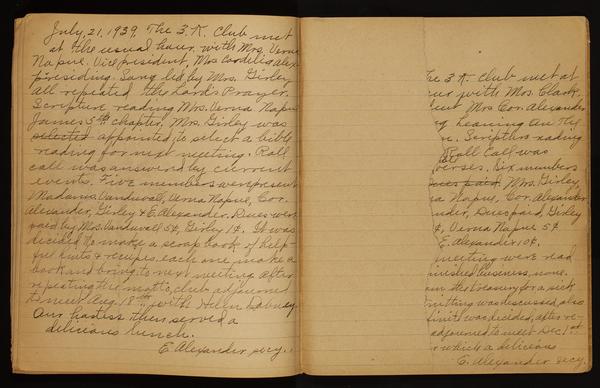 July, 21, 1939. The 3. K. Club met
at the usual hour with Mrs. Verna
Napue. Vice president, Mrs Cordelia Alex-
presiding. Song led by Mrs. Girley
all repeated the Lord's Prayer.
Scripture reading Mrs. Verna Napue
James 5th chapter, Mrs. Girley was
selected appointed to select a bible
reading for next meeting. Roll
call was answered by current
events. Five members were present
Madams. Vanduvall, Verna Napue, Cor.
Alexander, Girley & E. Alexander. Dues were
paid by Mrs. Vanduvall 5¢, Girley 1¢. It was
decided to make a scrap book of help-
ful hints & recipes, each one make a
book and bring to next meeting. After
repeating the motto, club adjourned
to meet Aug. 18th, with Helen Dabney
Our hostess then served a
delicious lunch.
E. Alexander secy.
he 3 K. Club met at
our with Mrs. Clark.
Mrs Cor. Alexander
Leaning On The
Scripture reading
Roll Call was
verses. Six members
dues paid, Mrs. Girley,
na Napue, Cor. Alexander
nder, Dues paid, Girley
¢, Verna Napue 5¢
E. Alexander 10¢.
meeting were read
finished business, none.
in the treasury for a sick
nitting was discussed, also
limits was decided, after re-
adjourned to meet Dec 1st
r which a delicious
E. Alexander secy.